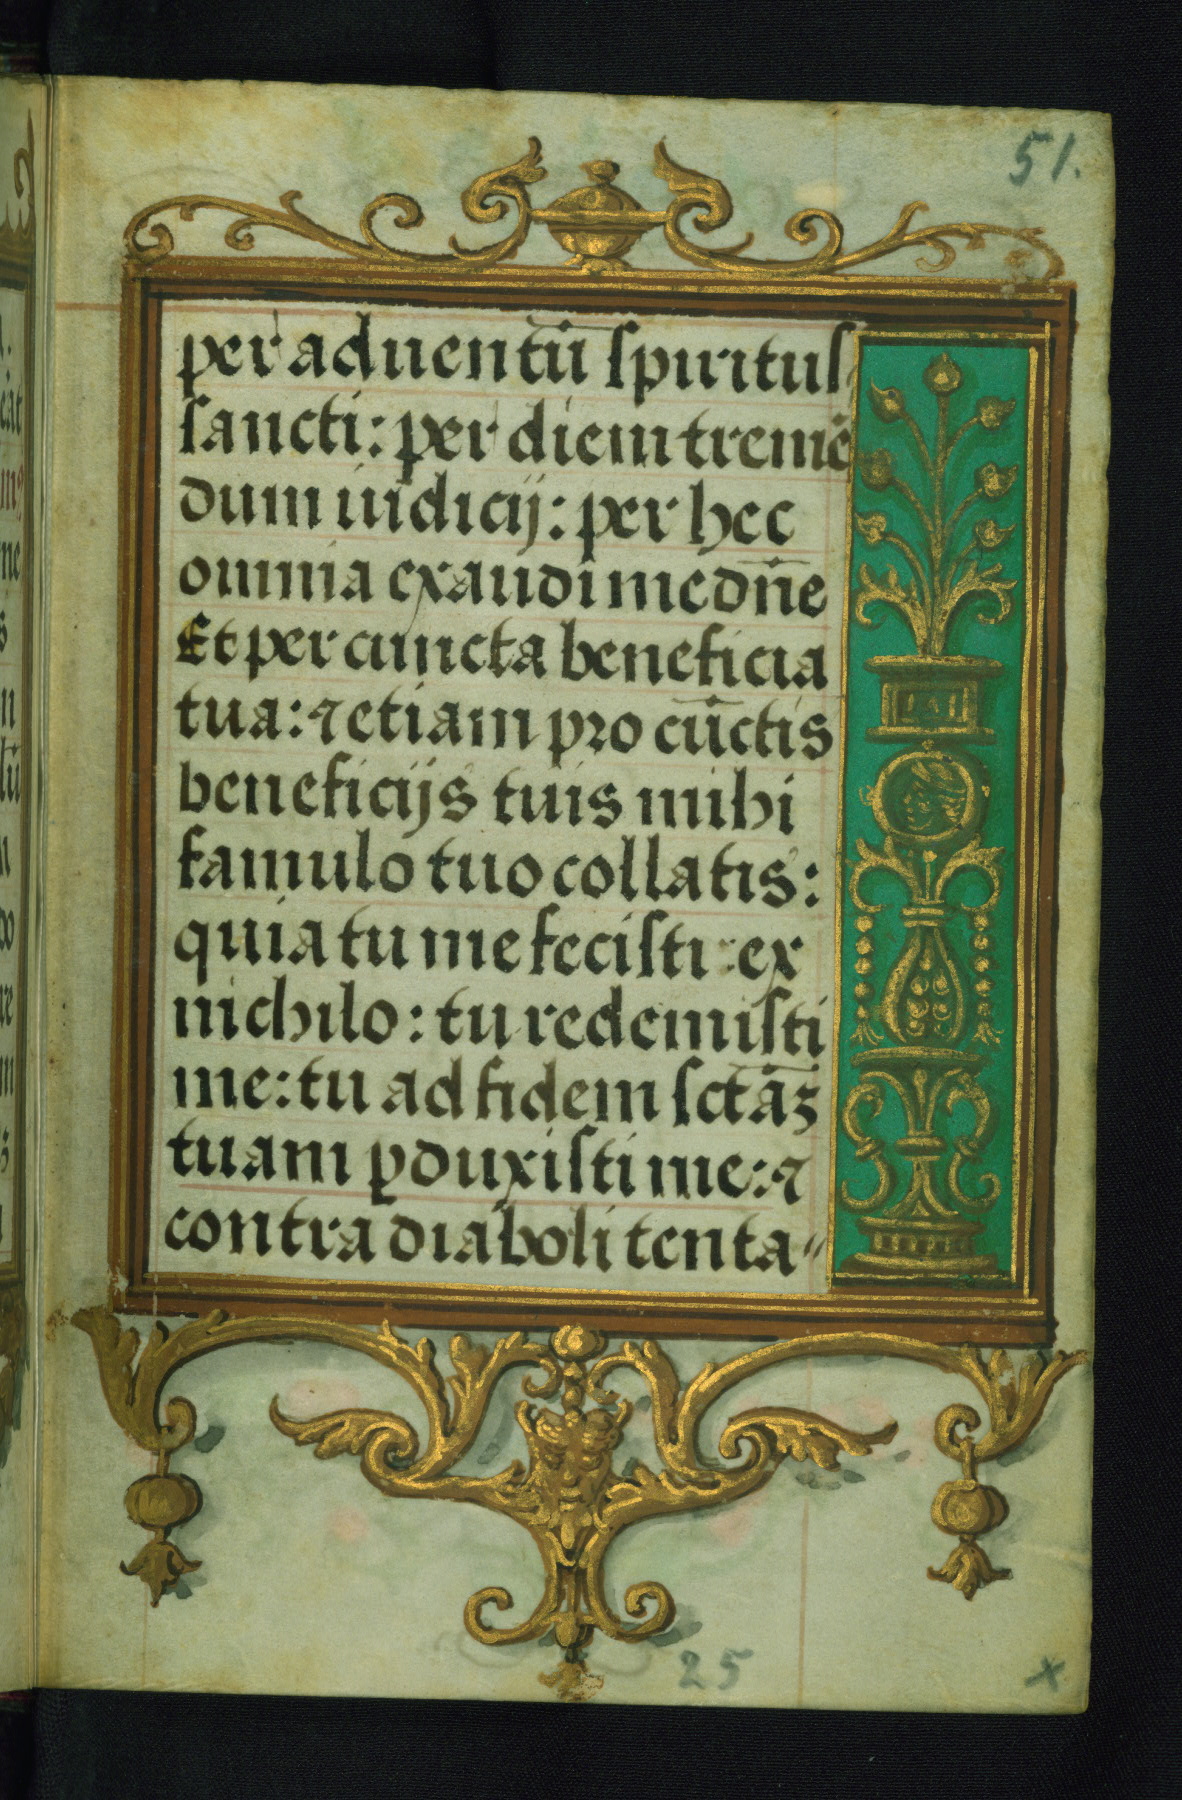 51.
per aduentū ſpiritus
ſancti: per diem tremē
dum iudicij: per hec
omnia exaudi me dn̄e
Et per cuncta beneficia
tua: ⁊ etiam pro cūctis
beneficijs tuis mihi
famulo tuo collatis:
quia tu me feciſti: ex
nichilo: tu redemiſti
me: tu ad fidem ſctāꝫ
tuam ꝓduxiſti me: ⁊
contra diaboli tenta〃
25 x